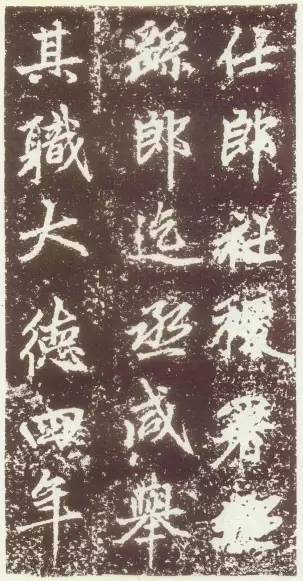 仕郎社稷署丞
繇郎迄丞咸舉
其職大德四年